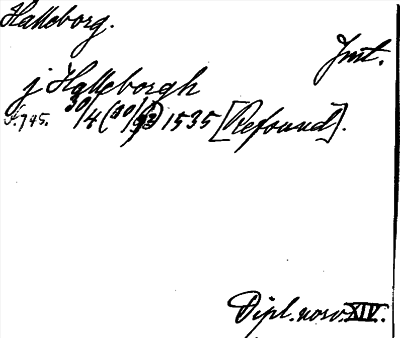 Halleborg.
Jmt.
j Halleborgh
S. 745. 30/4 (30/12) 1535 [Refsund].
Dipl. norv. XIV.